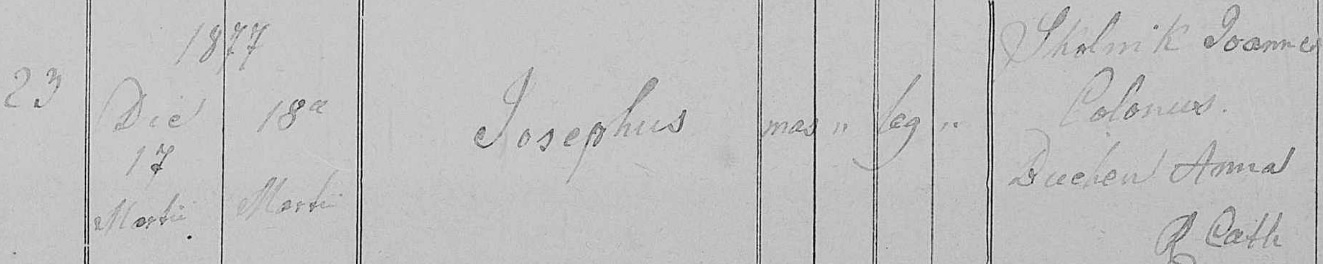 1877
23
Die 18a
17
Martii Martii
Josephus
mas " leg "
Skolnik Joannes
Colonus.
Duchen Anna
R Cath